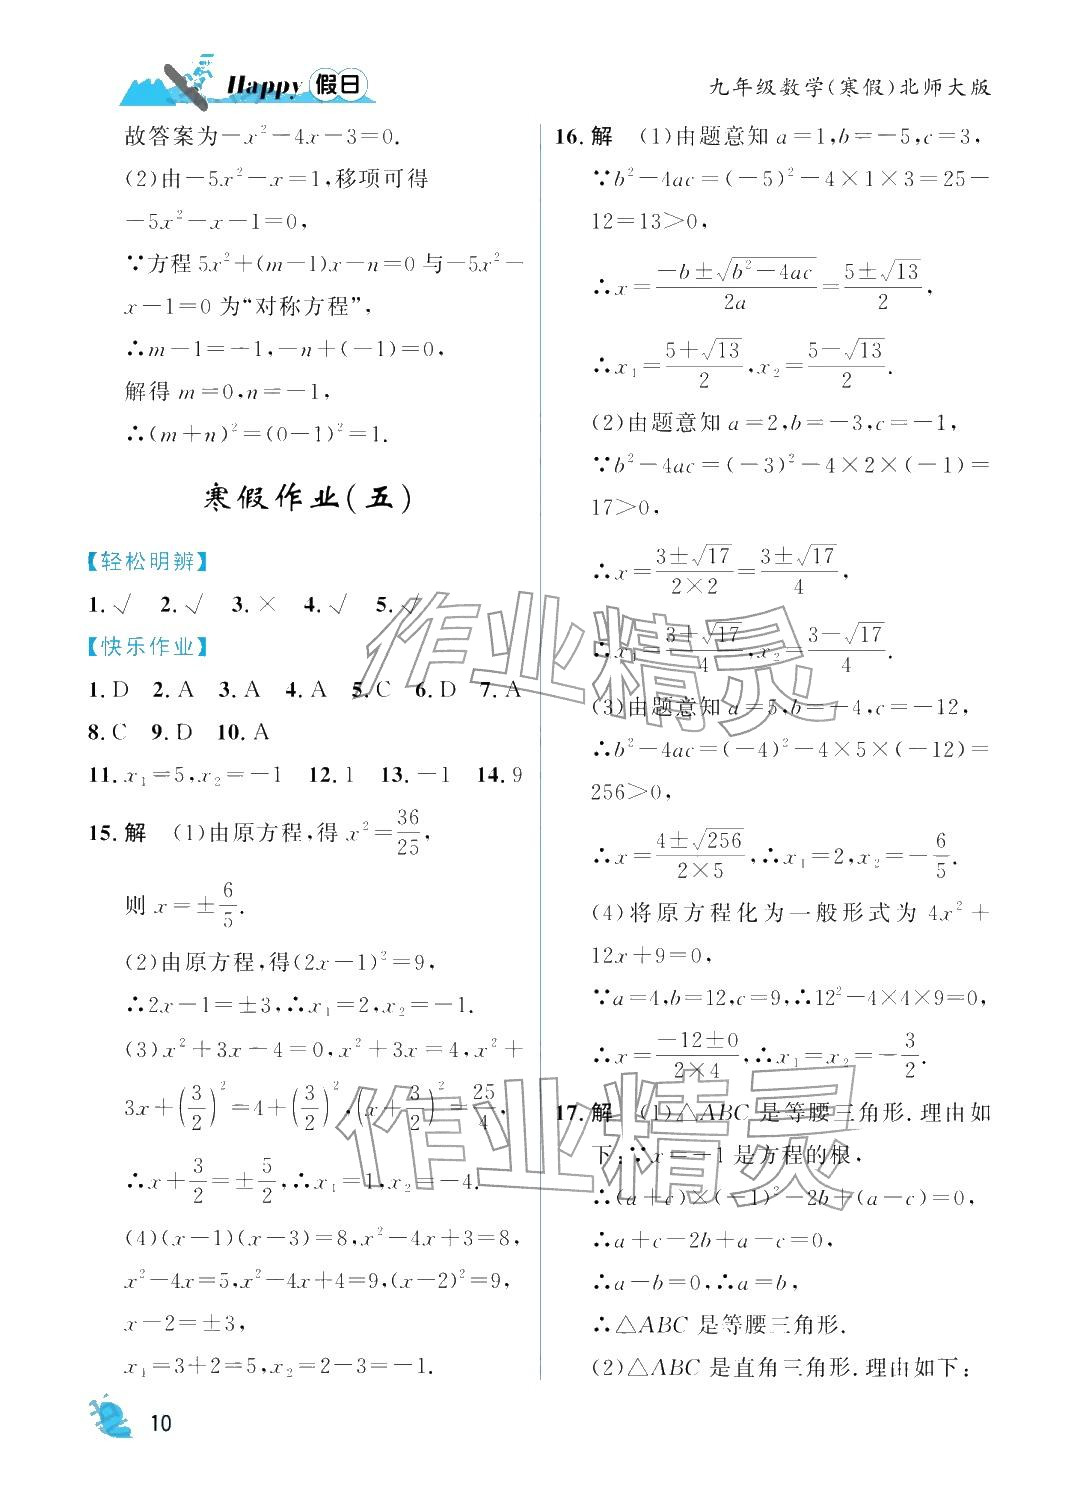 Happy假日
九年级数学(寒假)北师大版
故答案为－x²－4x－3＝0.
(2)由－5x²－x＝1,移项可得
－5x²－x－1＝0,
∵方程5x²＋(m－1)x－n＝0与－5x²－
x－1＝0为“对称方程”,
∴m－1＝－1,－n＋(－1)＝0,
解得m＝0,n＝－1,
∴(m＋n)²＝(0－1)²＝1.
寒假作业(五)
【轻松明辨】
1.√ 2.√ 3.× 4.√ 5.√
【快乐作业】
1.D 2.A 3.A 4.A 5.C 6.D 7.A
8.C 9.D 10.A
11.x₁＝5,x₂＝－1 12.1 13.－1 14.9
15.解 (1)由原方程,得x²＝36/25,
则x＝±6/5.
(2)由原方程,得(2x－1)²＝9,
∴2x－1＝±3,∴x₁＝2,x₂＝－1.
(3)x²＋3x－4＝0,x²＋3x＝4,x²＋
3x＋(3/2)²＝4＋(3/2)²,(x＋3/2)²＝25/4,
∴x＋3/2＝±5/2,∴x₁＝1,x₂＝－4.
(4)(x－1)(x－3)＝8,x²－4x＋3＝8,
x²－4x＝5,x²－4x＋4＝9,(x－2)²＝9,
x－2＝±3,
x₁＝3＋2＝5,x₂＝2－3＝－1.
16.解 (1)由题意知a＝1,b＝－5,c＝3,
∵b²－4ac＝(－5)²－4×1×3＝25－
12＝13＞0,
∴x＝(－b±√(b²－4ac))/2a＝(5±√13)/2,
∴x₁＝(5＋√13)/2,x₂＝(5－√13)/2.
(2)由题意知a＝2,b＝－3,c＝－1,
∵b²－4ac＝(－3)²－4×2×(－1)＝
17＞0,
∴x＝(3±√17)/(2×2)＝(3±√17)/4,
∴x₁＝(3＋√17)/4,x₂＝(3－√17)/4.
(3)由题意知a＝5,b＝－4,c＝－12,
∴b²－4ac＝(－4)²－4×5×(－12)＝
256＞0,
∴x＝(4±√256)/(2×5),∴x₁＝2,x₂＝－6/5.
(4)将原方程化为一般形式为4x²＋
12x＋9＝0,
∵a＝4,b＝12,c＝9,∴12²－4×4×9＝0,
∴x＝(－12±0)/(2×4),∴x₁＝x₂＝－3/2.
17.解 (1)△ABC是等腰三角形.理由如
下:∵x＝－1是方程的根,
∴(a＋c)×(－1)²－2b＋(a－c)＝0,
∴a＋c－2b＋a－c＝0,
∴a－b＝0,∴a＝b,
∴△ABC是等腰三角形.
(2)△ABC是直角三角形.理由如下:
10
作业精灵
作业精灵